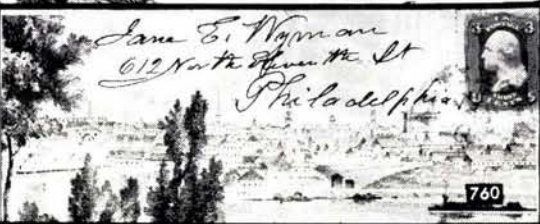 Jane E. Wyman
612 North Eleventh St
Philadelphia
3 3
760